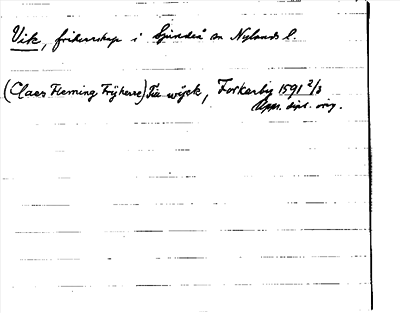 Vik, friherrskap i Sjundeå sn Nylands l.
(Claes Fleming Frijherre) Till wijck, Forkarby 1591 2/3
Upps. dipl. orig.